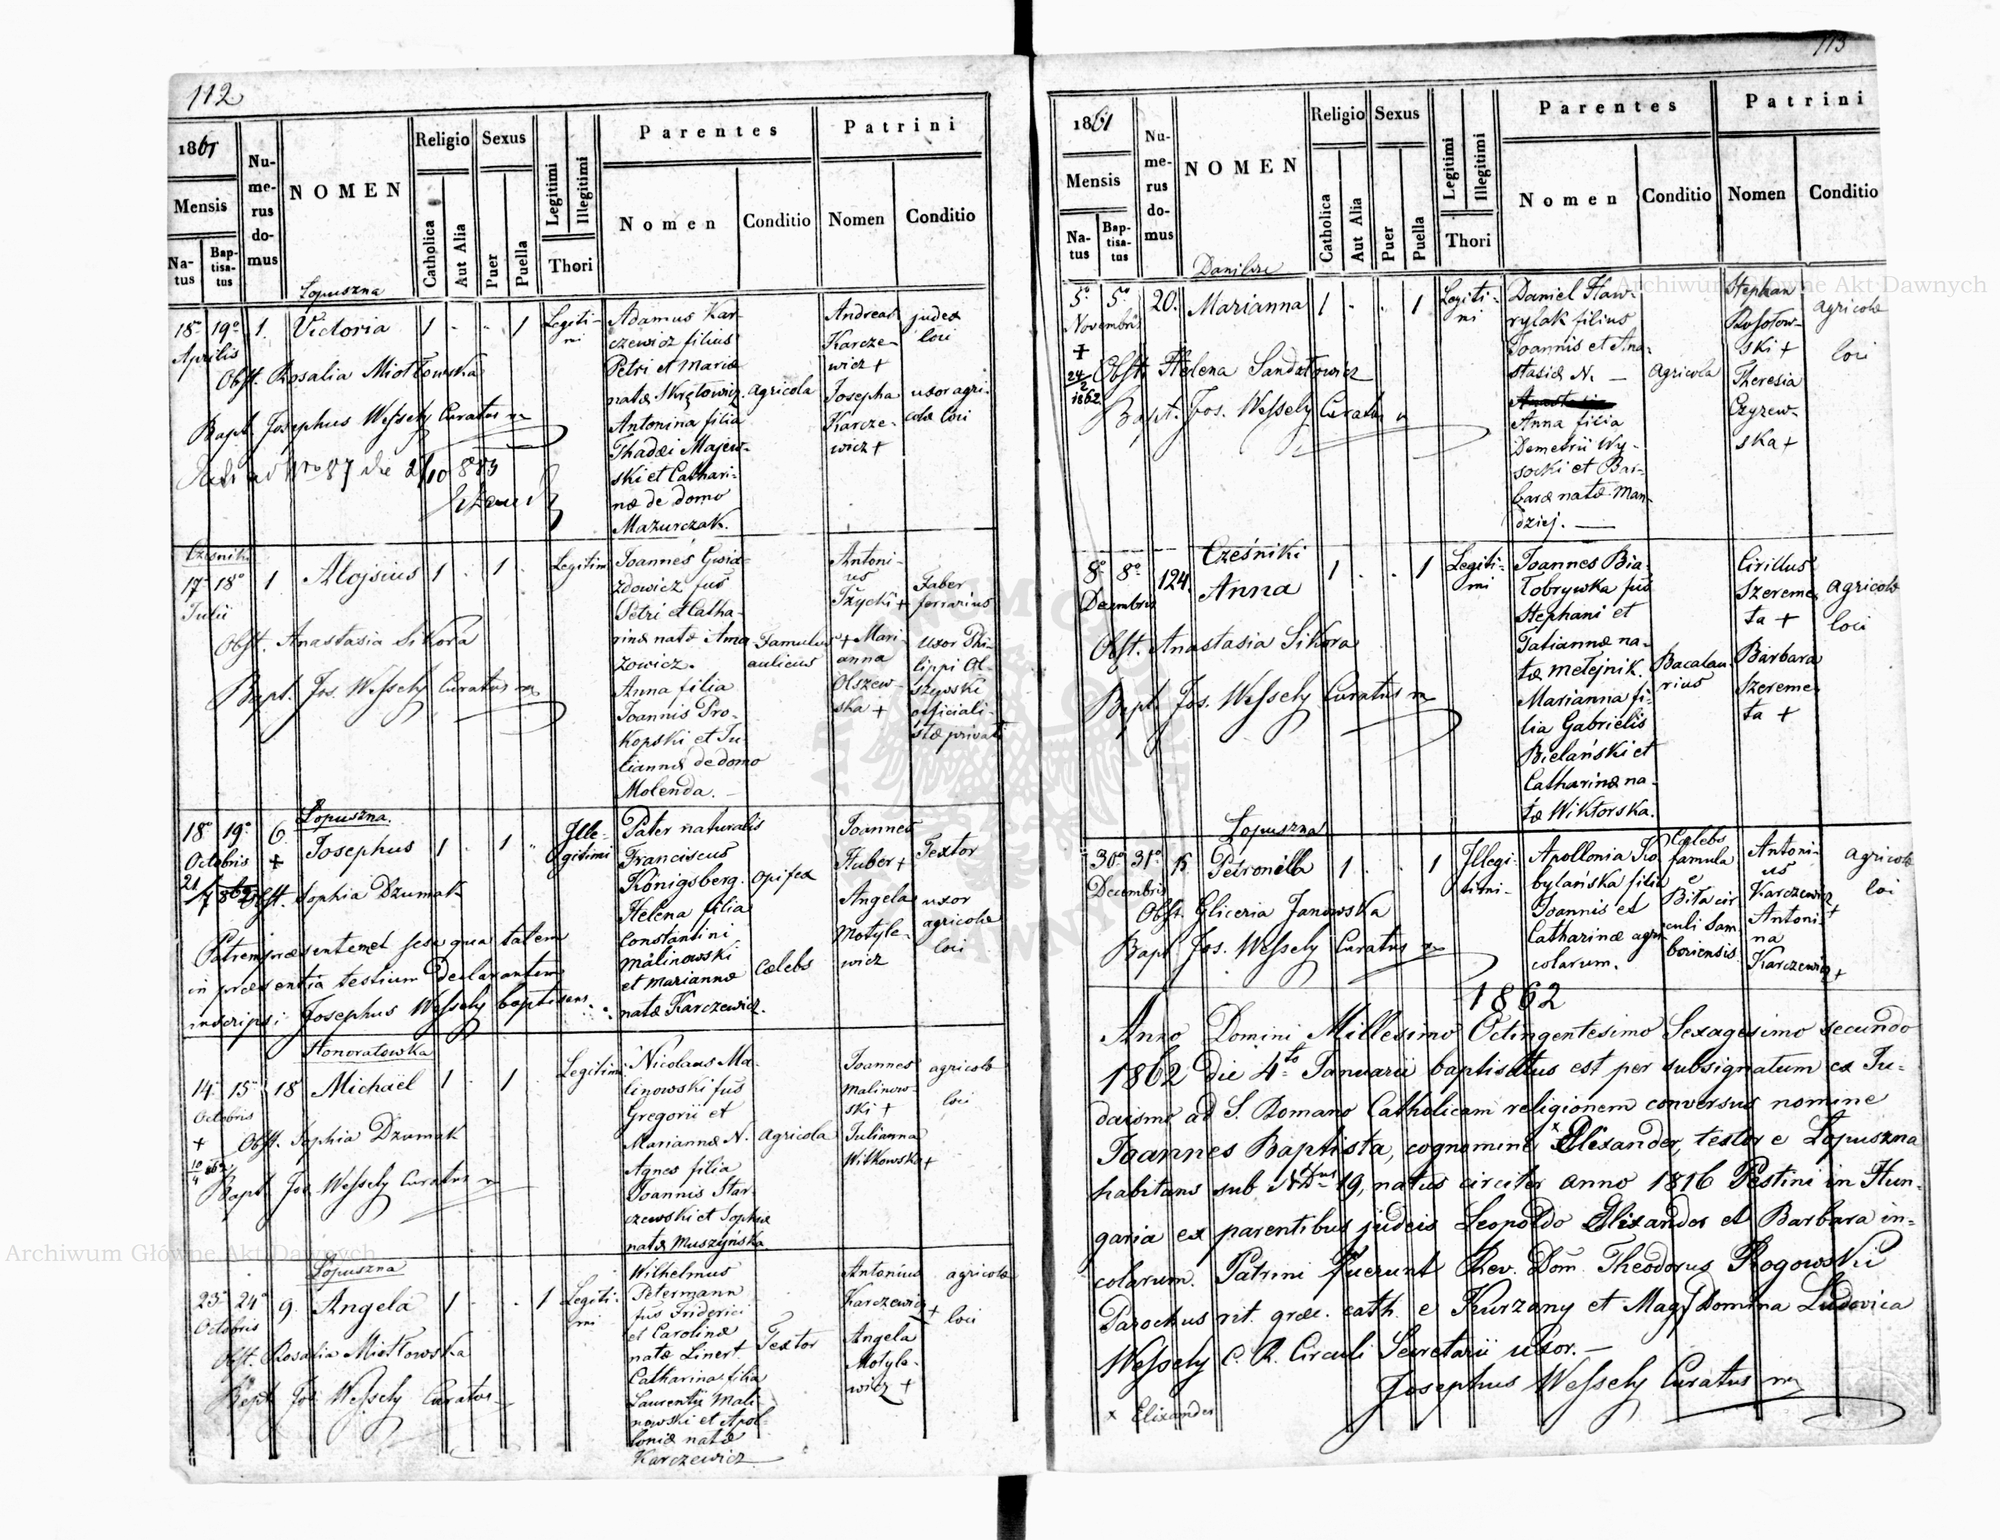 112
1861
Mensis
Natus
Baptisatus
Numerus domus
NOMEN
Religio
Catholica
Aut Alia
Sexus
Puer
Puella
Legitimi
Illegitimi
Thori
Parentes
Nomen
Conditio
Patrini
Nomen
Conditio
Lopuszna
18º 19º 1. Victoria 1 - - 1 Legiti-
mi
Aprilis
Obst. Rosalia Miotłowska
Bapt. Josephus Wessely Curatus
Adamus Kar-
czewicz filius
Petri et Mariæ
natæ Skrętowicz. agricola
Antonina filia
Thadæi Majew-
ski et Cathari-
næ de domo
Mazurczak.
Andreas
Karcze-
wicz +
Josepha
Karcze-
wicz +
judex
loci
uxor agri-
colæ loci
Cześniki
17º 18º 1 Alojsius 1 . 1 . Legitimi
Julii
Obst. Anastasia Sikora
Bapt. Jos. Wessely Curatus
Joannes Gwia-
zdowicz fus
Petri et Catha-
rinæ natæ Ama-
zowicz.
Anna filia
Joannis Pro-
kopski et Ju-
liannæ de domo
Molenda. —
Famulus
aulicus
Antoni-
us
Tżycki +
+ Mari-
anna
Olszew-
ska +
Faber
ferrarius
uxor Phi-
lippi Ol-
szewski
officiali-
stæ privati
Lopuszna.
18º 19º 6. Josephus 1 . 1 " Ille-
gitimi
Octobris +
Obst. Sophia Dzumak
Patrem præsentemet sese qua talem
in præsentia testium declarantem
inscripsi: Josephus Wessely baptisans.
Pater naturalis
Franciscus
Königsberg. opifex
Helena filia
Constantini
Malinowski
et Mariannæ cælebs
natæ Karczewicz.
Joannes
Huber +
Angela
Motyle-
wicz
Textor
uxor
agricolæ
loci
Honoratowka
14º 15º 18 Michaël 1 . 1 . Legitimi
Octobris
+ Obst. Sophia Dzumak
Bapt. Jos. Wessely Curatus
Nicolaus Ma-
linowski fus
Gregorii et
Mariannæ N. agricola
Agnes filia
Joannis Star-
czewski et Sophiæ
natæ Muszyńska
Joannes
Malinow-
ski +
Julianna
Witkowska +
agricolæ
loci
Lopuszna
23º 24º 9. Angela 1 . . 1 Legiti-
mi
Octobris
Obst. Rosalia Miotłowska
Bapt. Jos. Wessely Curatus
Wilhelmus
Petermann
fus Friderici
et Carolinæ
natæ Linert. Textor
Catharina filia
Laurentii Mali-
nowski et Apol-
loniæ natæ
Karczewicz
Antonius
Karczewicz +
Angela
Motyle-
wicz +
agricolæ
loci
113
1861
Mensis
Natus
Baptisatus
Numerus domus
NOMEN
Religio
Catholica
Aut Alia
Sexus
Puer
Puella
Legitimi
Illegitimi
Thori
Parentes
Nomen
Conditio
Patrini
Nomen
Conditio
5º 5º 20. Marianna 1 . . 1 Legiti-
mi
Novembris
+
24/2
1862
Obst. Helena Sandałowicz
Bapt. Jos. Wessely Curatus
Daniel Haw-
rylak filius
Joannis et Ana-
stasiæ N. — agricola
Anna filia
Demetrii Wy-
socki et Bar-
baræ natæ Man-
dziej. —
Stephan
Rosołow-
ski +
Theresia
Czyzew-
ska +
agricolæ
loci
Cześniki
8º 8º 124. Anna 1 . . 1 Legiti-
mi
Decembris
Obst. Anastasia Sikora
Bapt. Jos. Wessely Curatus
Joannes Bia-
łobrywka fus
Stephani et
Tatiannæ na-
tæ Melejnik.
Marianna fi-
lia Gabrielis
Bielański et
Catharinæ na-
tæ Wiktorska.
Bacalau-
rius
Cirillus
Szereme-
ta +
Barbara
Szereme-
ta +
agricolæ
loci
Lopuszna
30º 31º 15 Petronella 1 . . 1 Illegi-
timi-
Decembris
Obst. Gliceria Janowska
Bapt. Jos. Wessely Curatus
Apollonia Ko-
bylańska filia
Joannis et
Catharinæ agri-
colarum.
Cælebs
famula
e
Biła cir-
culi Sam-
boriensis
Antoni-
us
Karczewicz +
Antoni-
na
Karczewicz +
agricolæ
loci
1862
Anno Domini Millesimo Octingentesimo Sexagesimo secundo
1862 die 4ta Januarii baptisatus est per subsignatum ex Ju-
daismo ad S. Romano Catholicam religionem conversus nomine
Joannes Baptista, cognomine x Elixander, textor e Lopuszna
habitans sub Nrus 19, natus circiter anno 1816 Pestini in Hun-
garia ex parentibus judeis Leopoldo Elixander et Barbara in-
colarum. Patrini fuerunt Rev. Dom. Theodorus Rogowski
Parochus rit. græc. cath. e Kurzany et Mag. Domina Ludovica
Wessely C. R. Circuli Secretarii uxor. —
Josephus Wessely Curatus
x Elixander
Archiwum Główne Akt Dawnych
Archiwum Główne Akt Dawnych